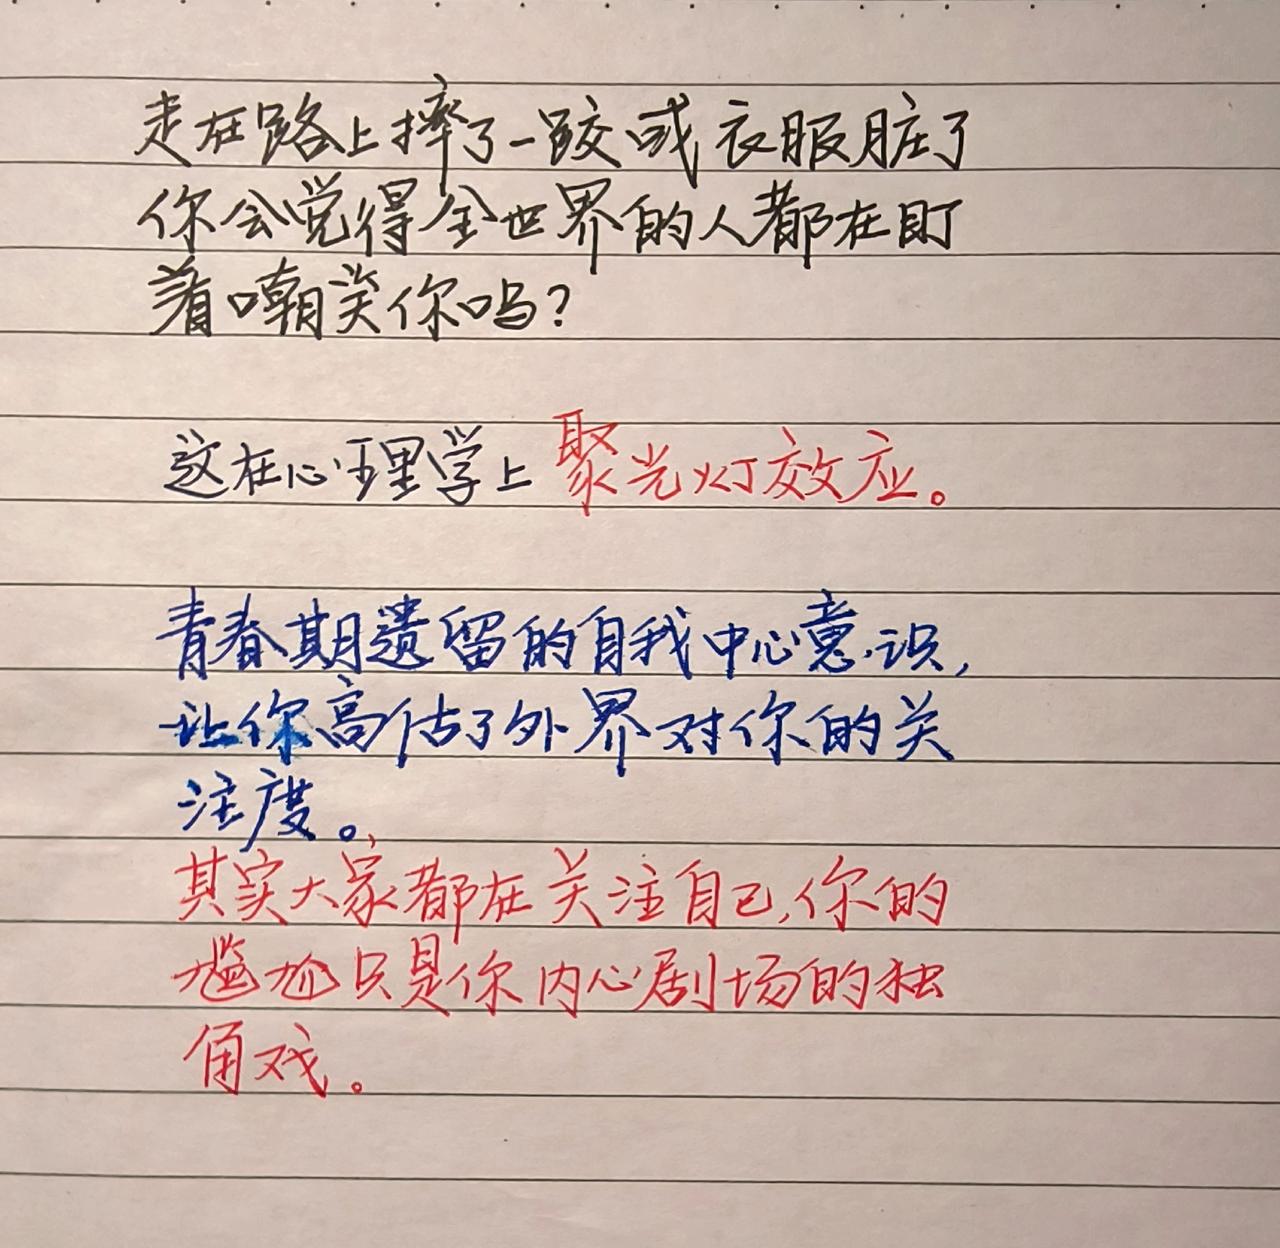 走在路上摔了一跤或衣服脏了
你会觉得全世界的人都在盯
着嘲笑你吗?
这在心理学上聚光灯效应。
青春期遗留的自我中心意识,
让你高估了外界对你的关
注度。
其实大家都在关注自己,你的
尴尬只是你内心剧场的独
角戏。